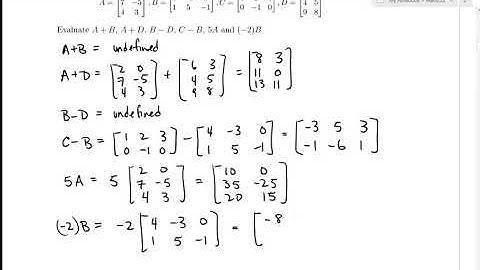 A = [7 -5; 4 3], B = [1 5 -1], C = [0 -1 0], D = [4 5; 9 8]
Evaluate A + B, A + D, B − D, C − B, 5A and (−2)B
A+B = undefined
A+D = [2 0; 7 -5; 4 3] + [6 3; 4 5; 9 8] = [8 3; 11 0; 13 11]
B-D = undefined
C-B = [1 2 3; 0 -1 0] - [4 -3 0; 1 5 -1] = [-3 5 3; -1 -6 1]
5A = 5 [2 0; 7 -5; 4 3] = [10 0; 35 -25; 20 15]
(-2)B = -2 [4 -3 0; 1 5 -1] = [-8